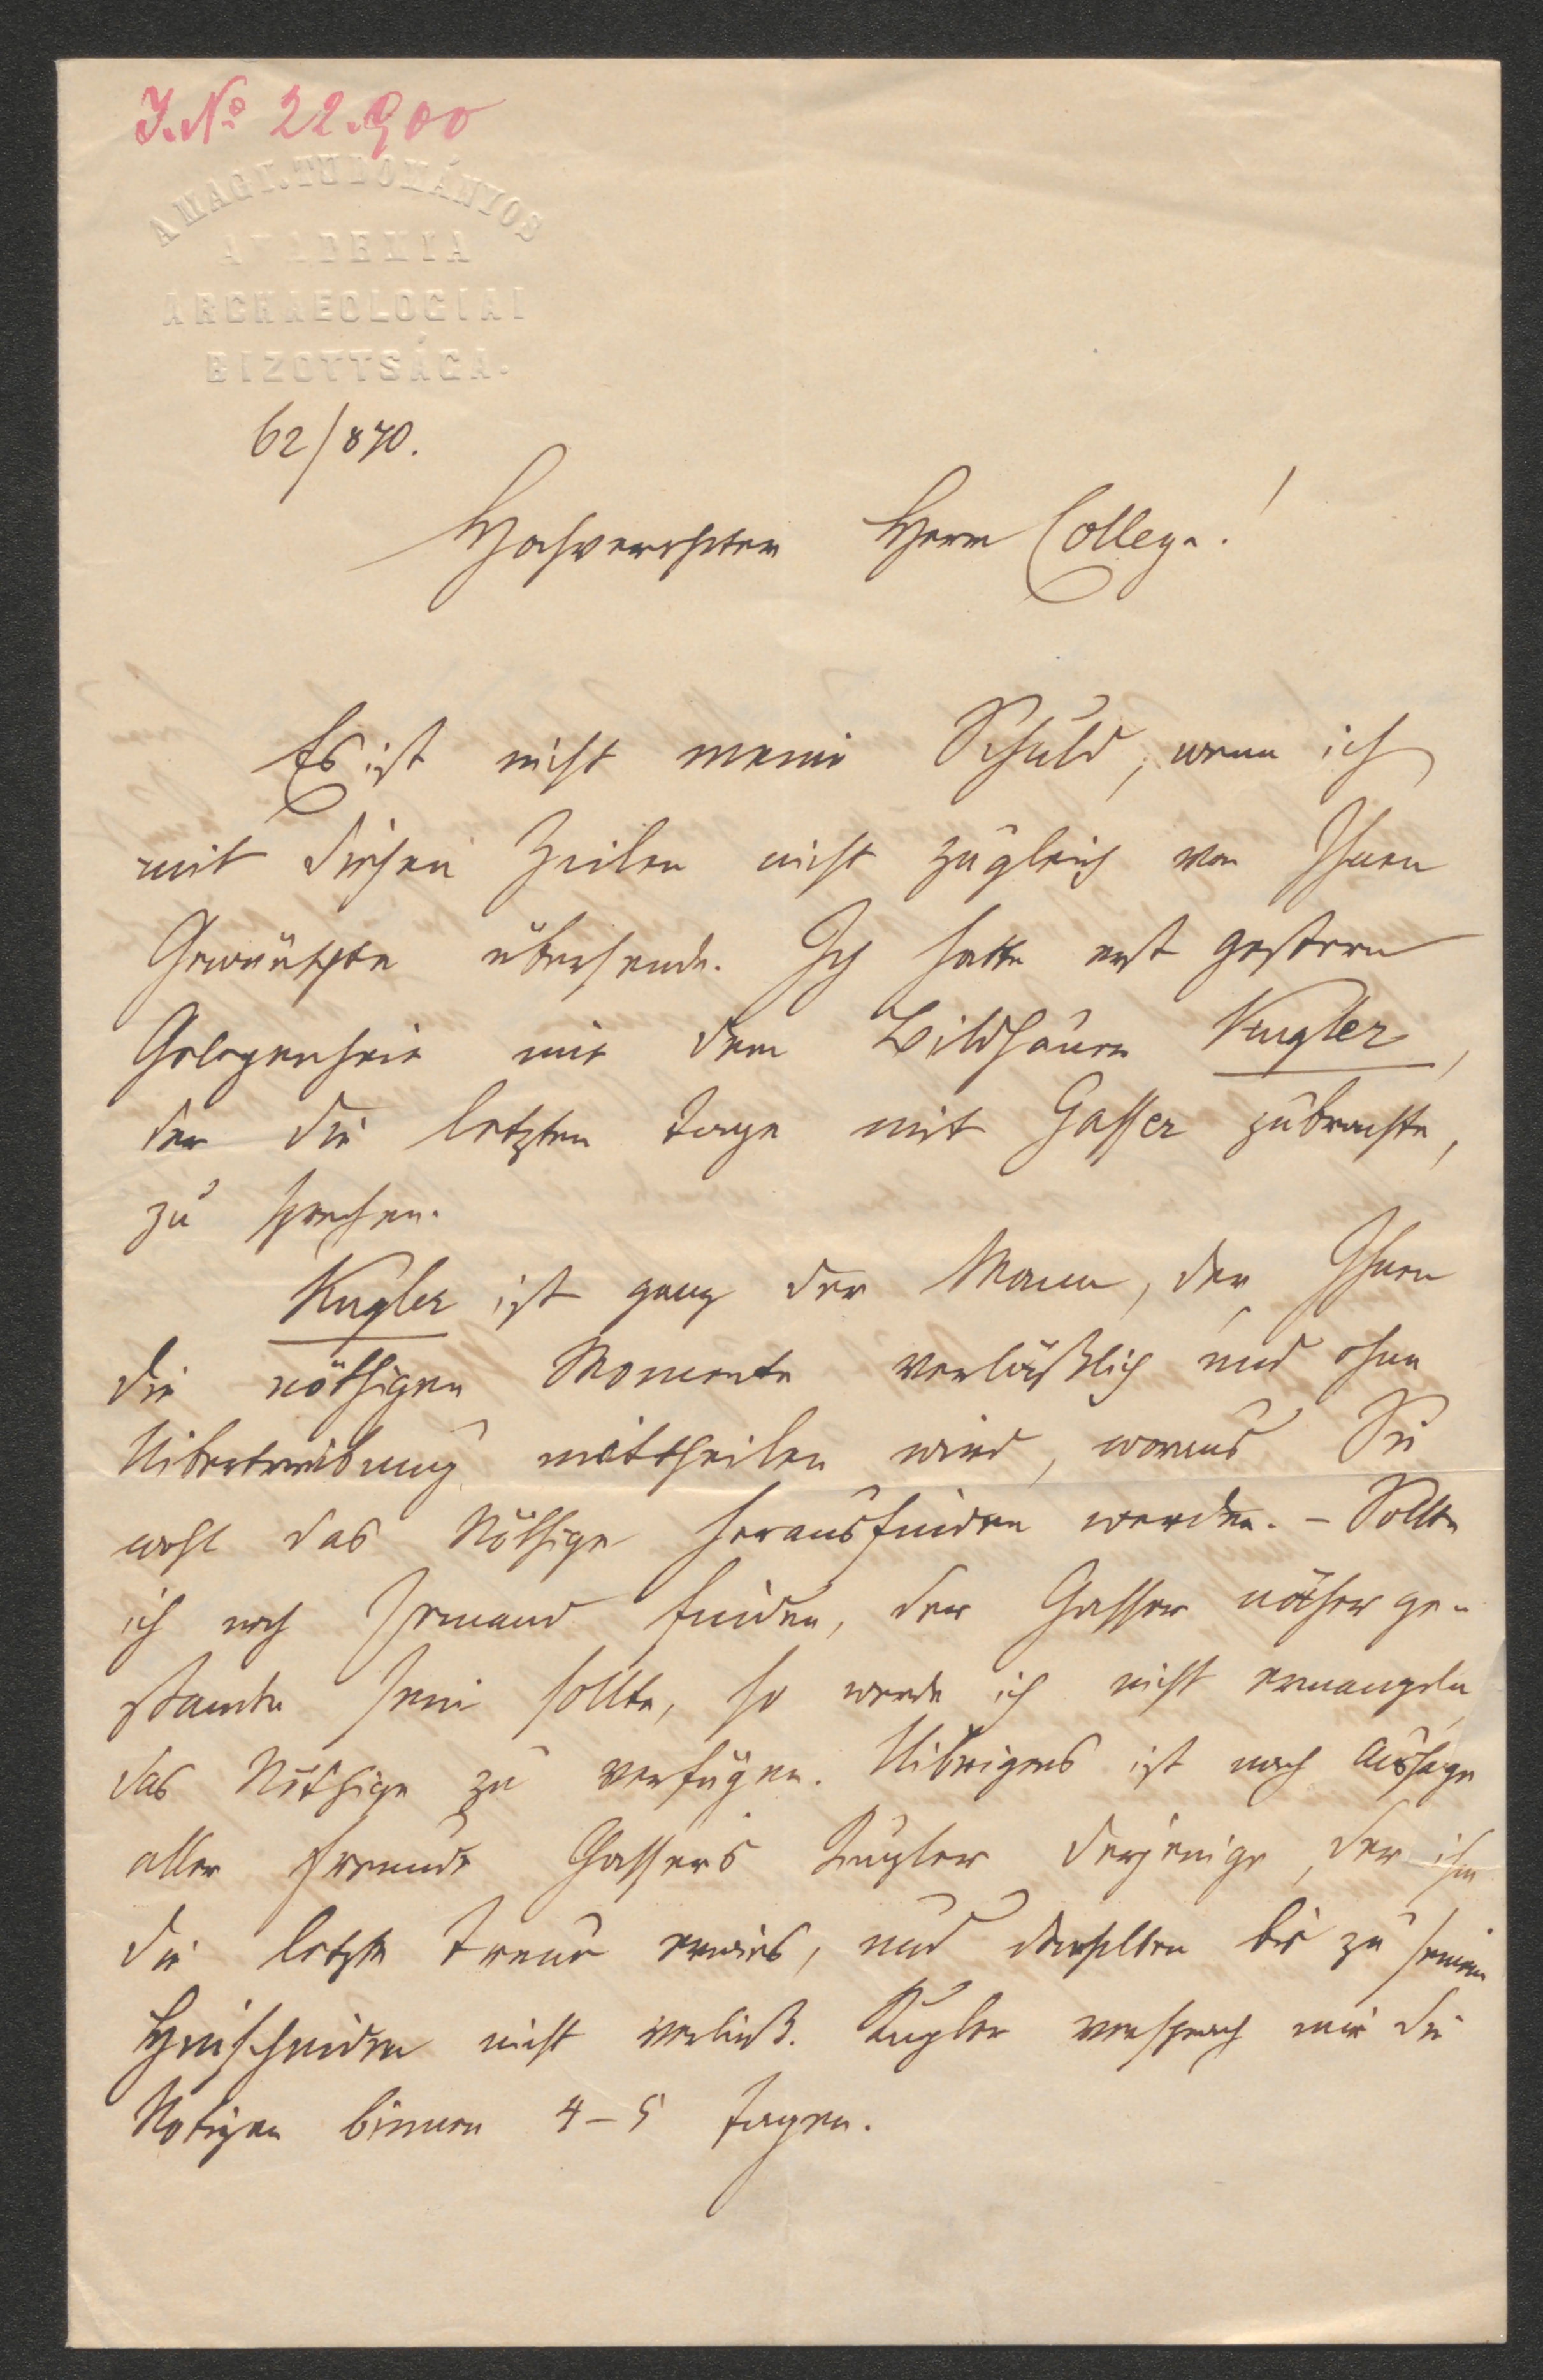 J. No 22.900
A MAGY. TUDOMÁNYOS
AKADEMIA
ARCHAEOLOGIAI
BIZOTTSÁGA.
62/870.
Hochverehrter Herr Collega!
Es ist nicht meine Schuld, wenn ich
mit diesen Zeilen nicht zugleich von Ihnen
Gewünschte übersende. Ich hatte erst gestern
Gelegenheit mit dem Bildhauer Kugler,
der die letzten Tage mit Gasser zubrachte,
zu sprechen.
Kugler ist ganz der Mann, der Ihnen
die nöthigen Momente verläßlich und ohne
Uibertreibung mittheilen wird, woraus Sie
wohl das Nöthige herausfinden werden. – Sollte
ich noch Jemand finden, der Gasser näher ge-
standen sein sollte, so werde ich nicht ermangeln
das Nöthige zu verfügen. Uibrigens ist nach Aussage
aller Freunde Gassers Kugler derjenige, der ihm
die letzte Treue erwies, und denselben bis zu seinem
Hinscheiden nicht verließ. Kugler versprach mir die
Notizen binnen 4–5 Tagen.